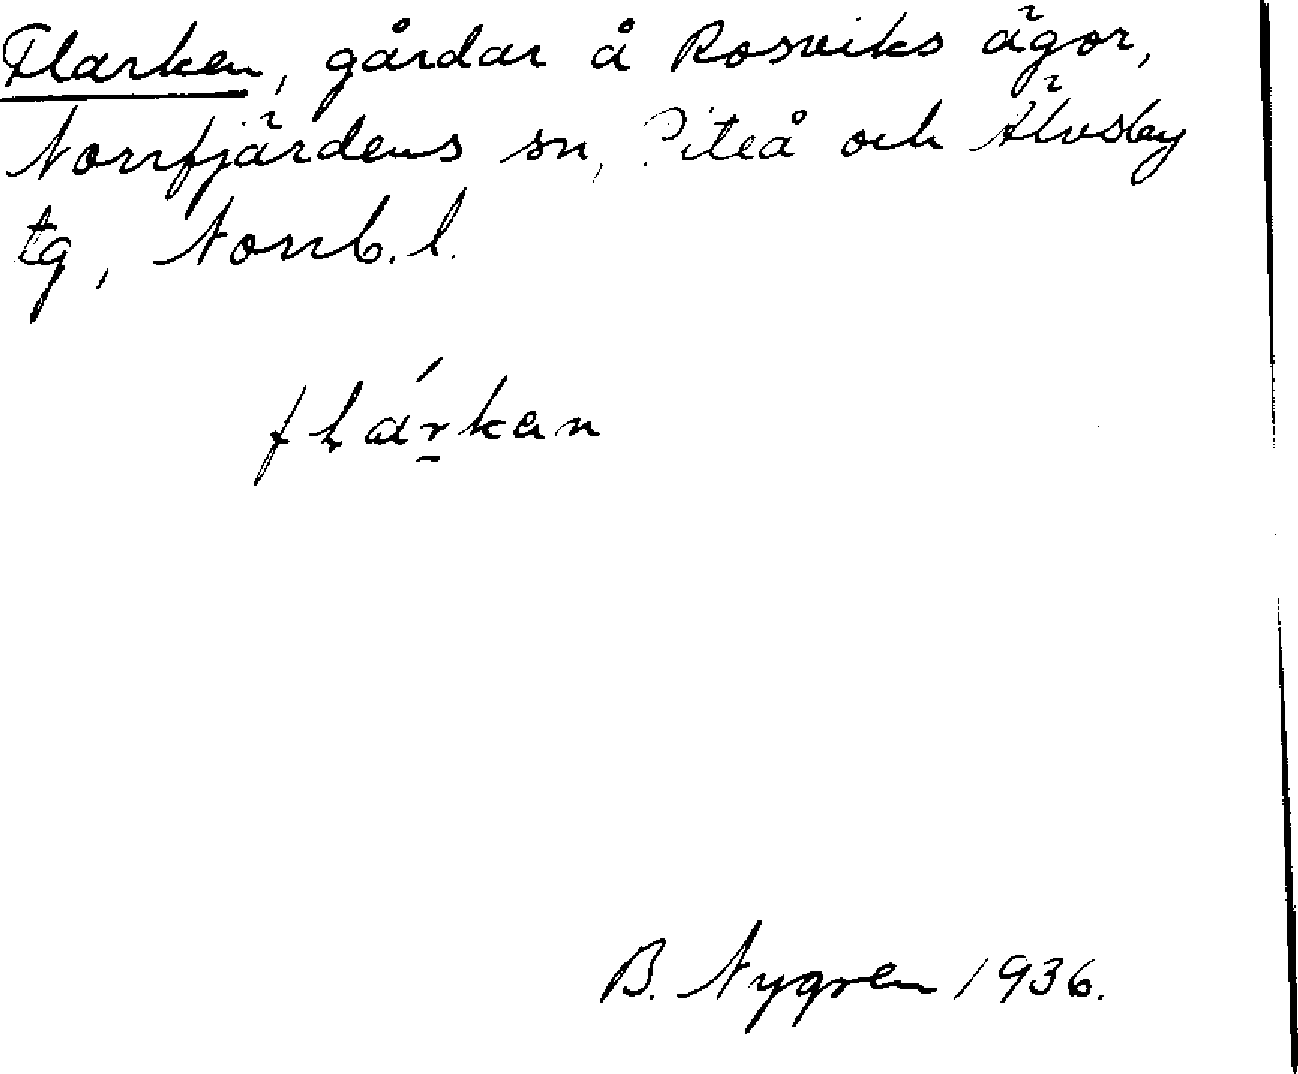 Flarken, gårdar å Rosviks ägor,
Norrfjärdens sn, Piteå och Älvsby
tg, Norrb. l.
flár̠kan
B. Nygren 1936.